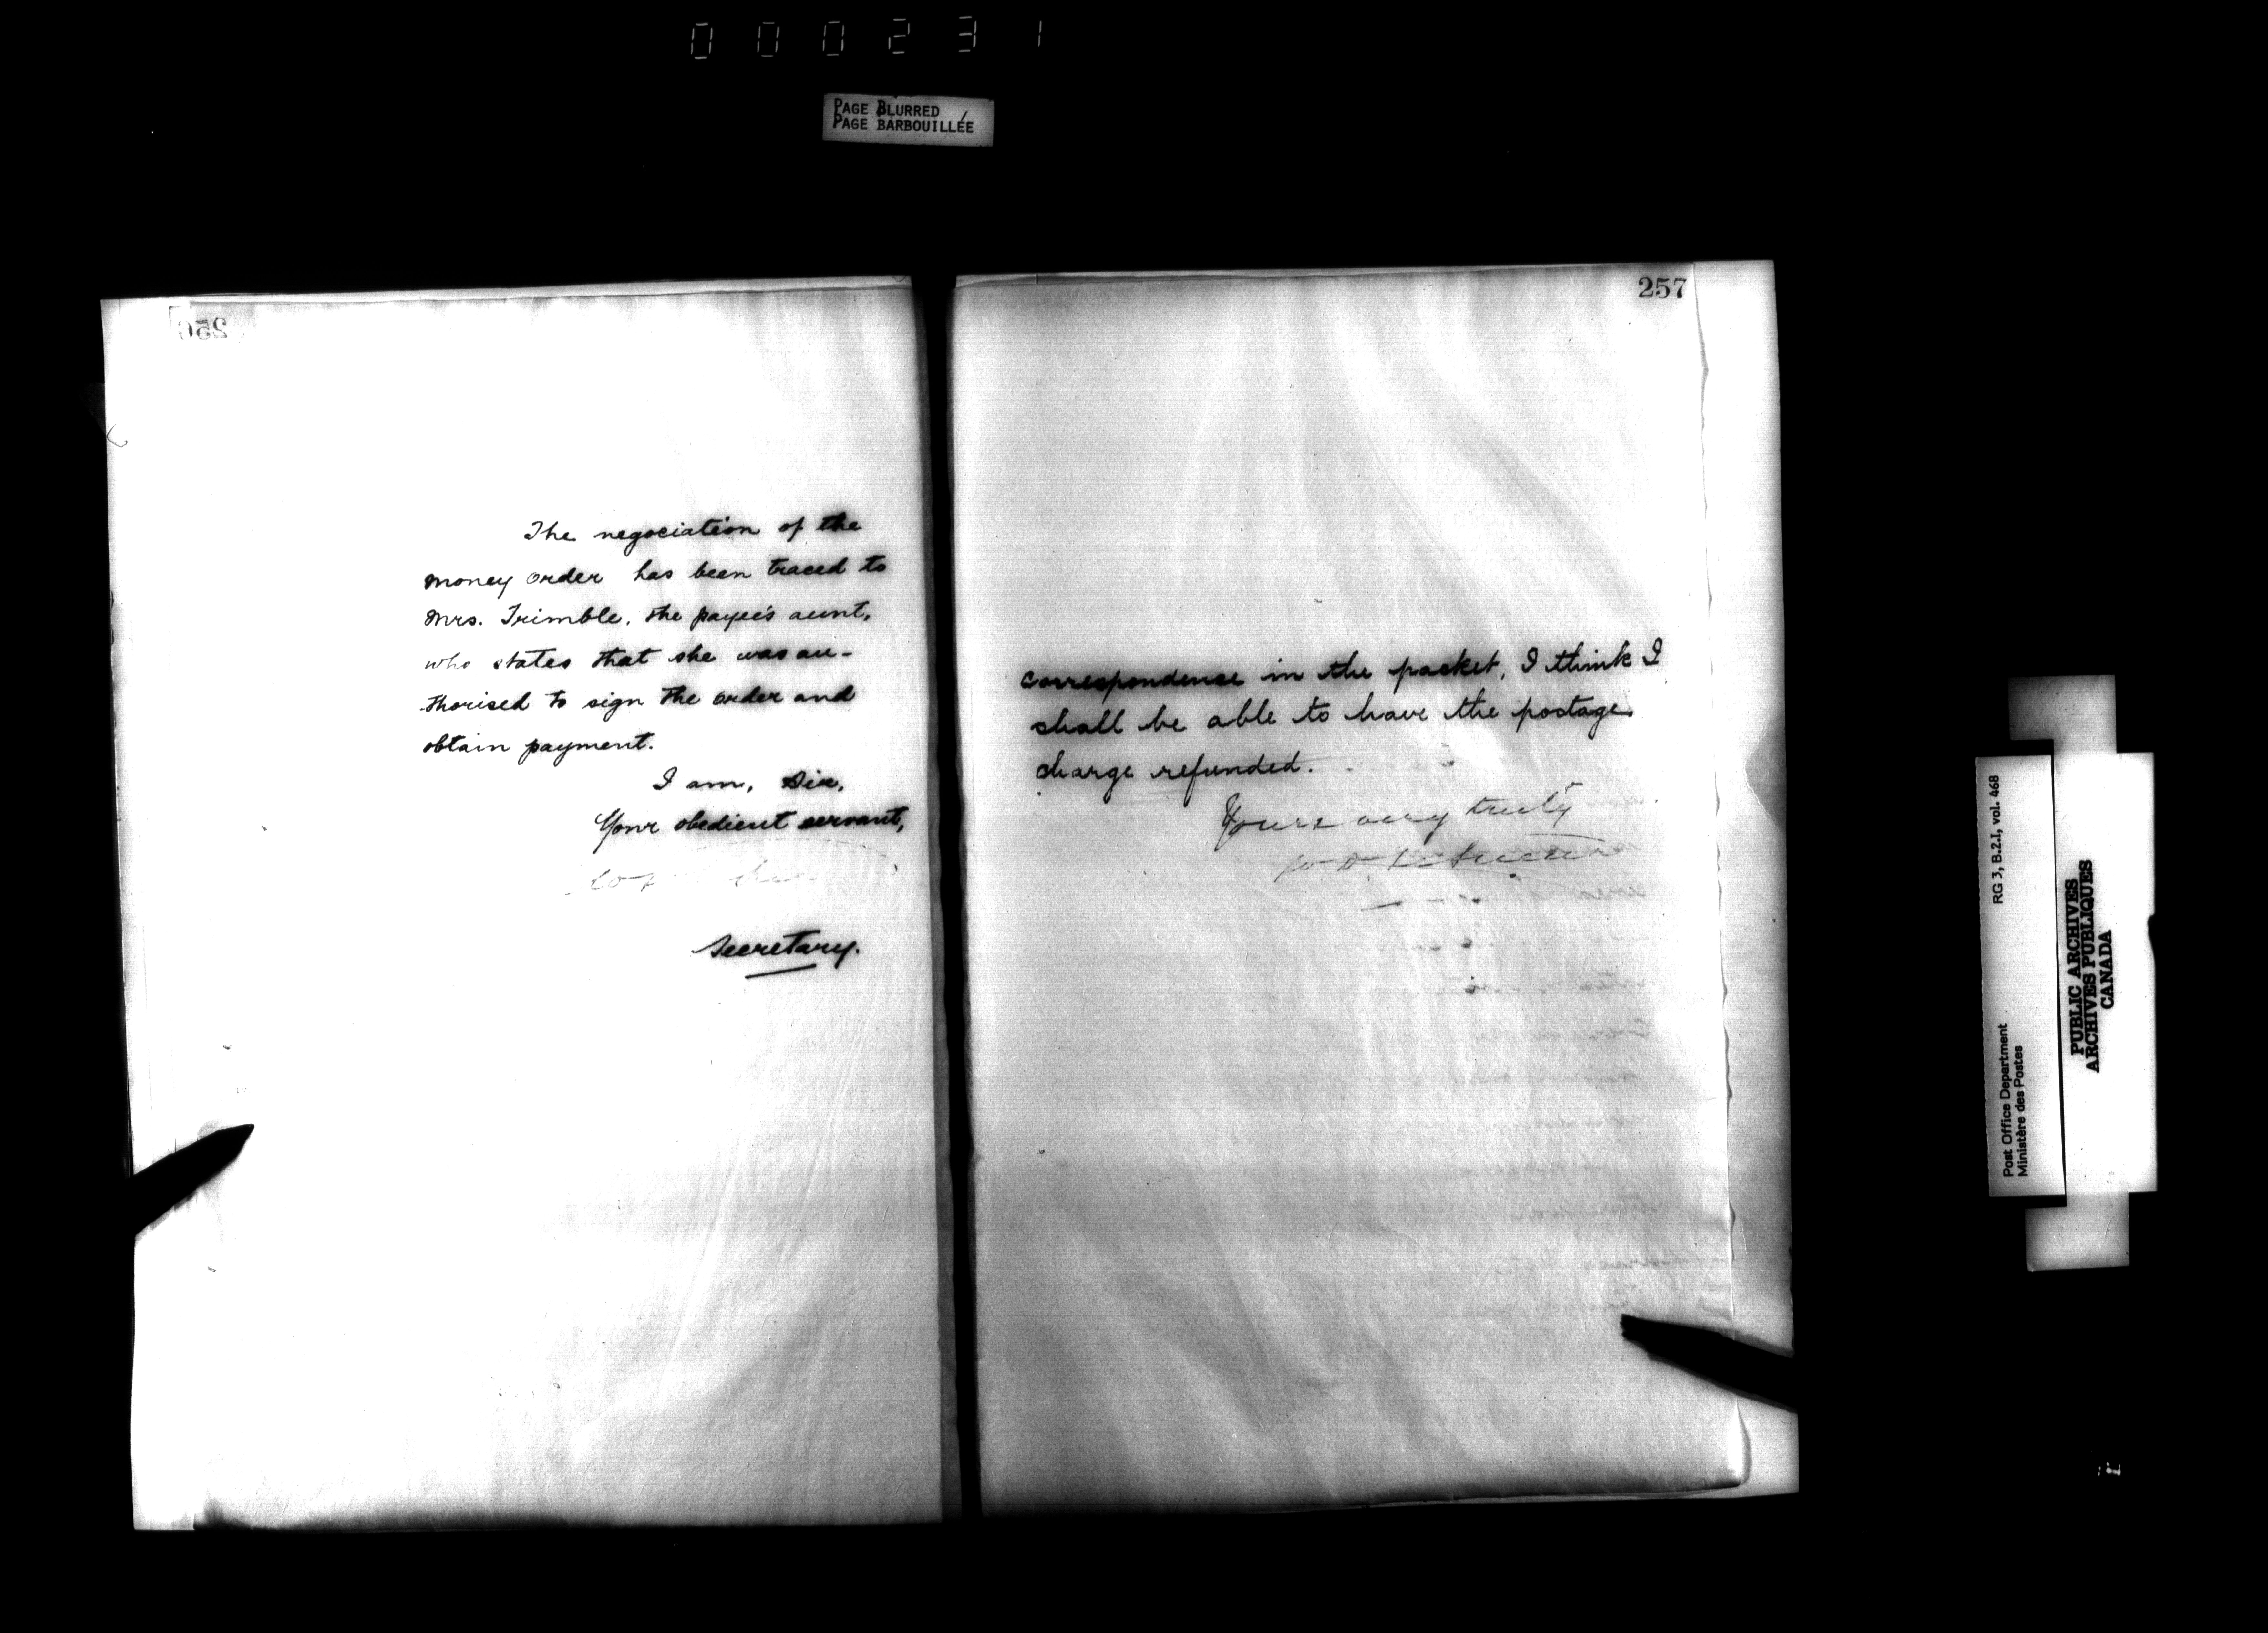 000231
PAGE BLURRED
PAGE BARBOUILLÉE
256
The negociation of the
money order has been traced to
Mrs. Trimble, the payee's aunt,
who states that she was au-
thorised to sign the order and
obtain payment.
I am, Sir,
Your obedient servant,
Secretary.
257
correspondence in the packet, I think I
shall be able to have the postage
charge refunded.
Yours very truly
RG 3, B.2.I, vol. 468
Post Office Department
Ministère des Postes
PUBLIC ARCHIVES
ARCHIVES PUBLIQUES
CANADA